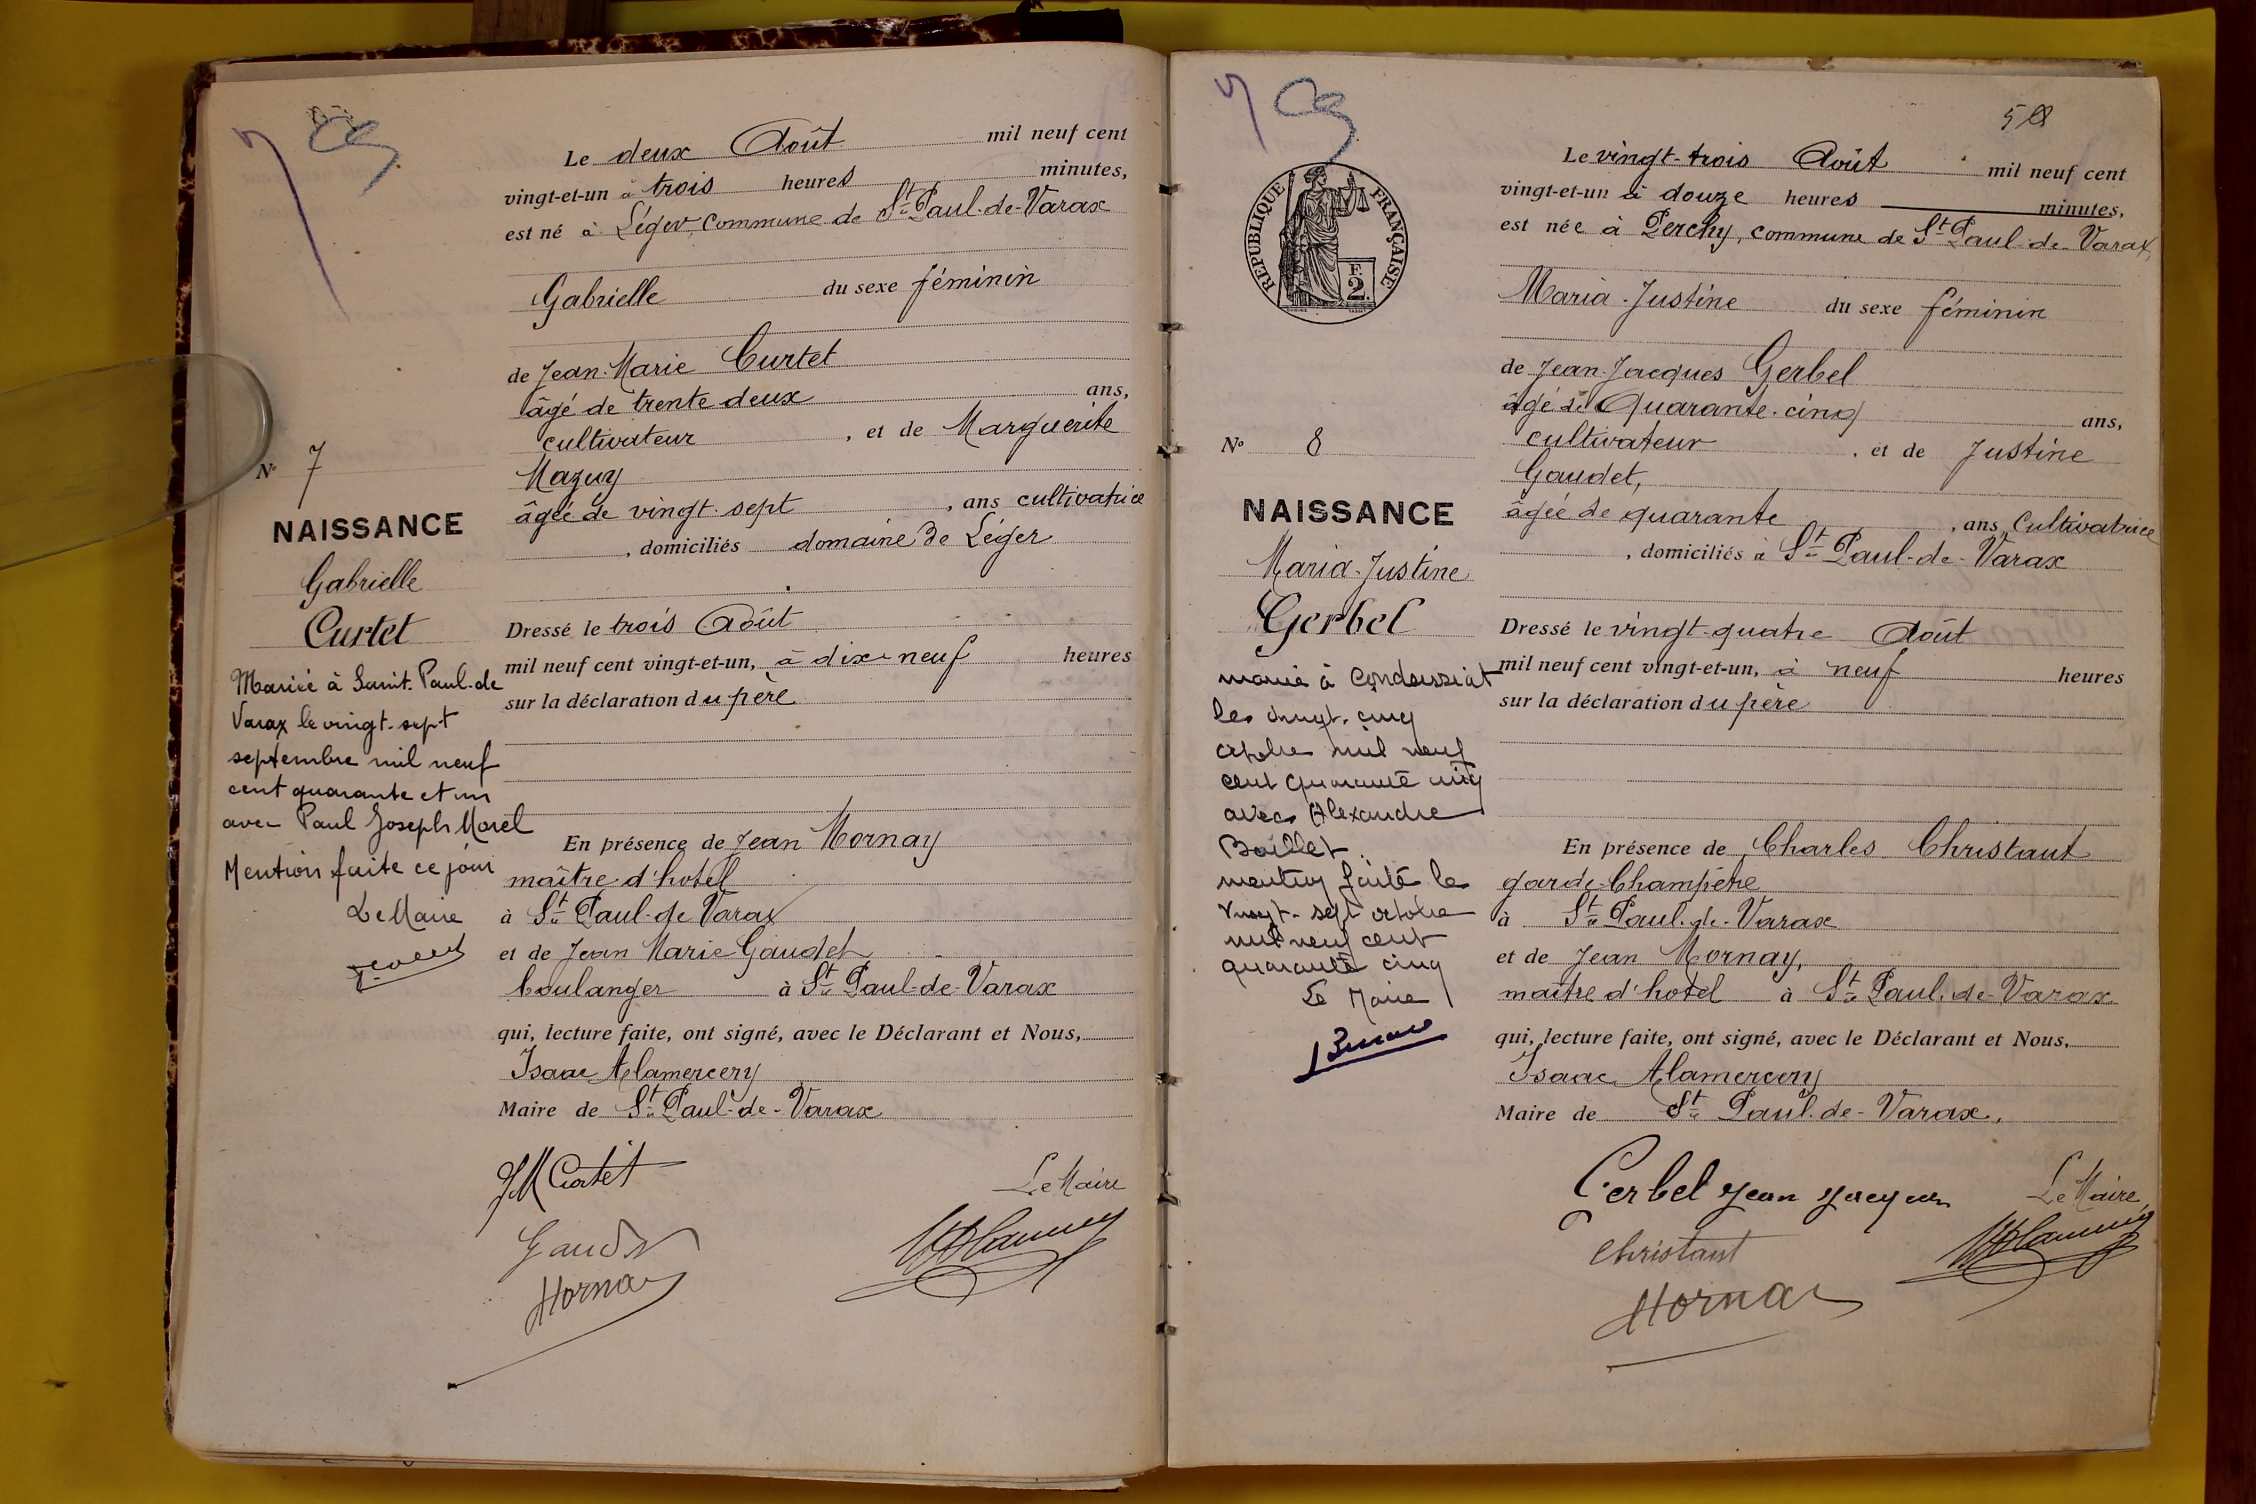 Le deux Août mil neuf cent
vingt-et-un à trois heures minutes,
est né à Léger, commune de St Paul-de-Varax
Gabrielle du sexe féminin
de Jean-Marie Curtet
âgé de trente deux ans,
cultivateur, et de Marguerite
Mazuy
âgée de vingt-sept, ans cultivatrice
, domiciliés domaine de Léger
Dressé le trois Août
mil neuf cent vingt-et-un, à dix-neuf heures
sur la déclaration du père
En présence de Jean Mornay
maître d'hotel
à St Paul-de Varax
et de Jean Marie Gaudet
boulanger à St Paul-de-Varax
qui, lecture faite, ont signé, avec le Déclarant et Nous,
Isaac Alamercery
Maire de St Paul-de-Varax
JM Curtet
Le Maire
Gaudet
Mornay
No 7
NAISSANCE
Gabrielle
Curtet
Mariée à Saint-Paul-de
Varax le vingt-sept
septembre mil neuf
cent quarante et un
avec Paul Joseph Morel
Mention faite ce jour
Le Maire
58
RÉPUBLIQUE FRANÇAISE
F.
2
Le vingt-trois Août mil neuf cent
vingt-et-un à douze heures minutes,
est née à Perchy, commune de St Paul-de-Varax,
Maria-Justine du sexe féminin
de Jean-Jacques Gerbel
âgé de Quarante-cinq ans,
cultivateur, et de Justine
Gaudet,
âgée de quarante, ans, Cultivatrice
, domiciliés à St Paul-de-Varax
Dressé le vingt-quatre Août
mil neuf cent vingt-et-un, à neuf heures
sur la déclaration du père
En présence de Charles Christaut
garde-Champêtre
à St Paul-de-Varax
et de Jean Mornay,
maître d'hotel à St Paul-de-Varax
qui, lecture faite, ont signé, avec le Déclarant et Nous,
Isaac Alamercery
Maire de St Paul-de-Varax,
Gerbel Jean Jacques
Le Maire,
Christaut
Mornay
No 8
NAISSANCE
Maria-Justine
Gerbel
mariée à Condeissiat
le vingt-cinq
octobre mil neuf
cent quarante cinq
avec Alexandre
Baillet
mention faite le
vingt-sept octobre
mil neuf cent
quarante cinq
Le Maire